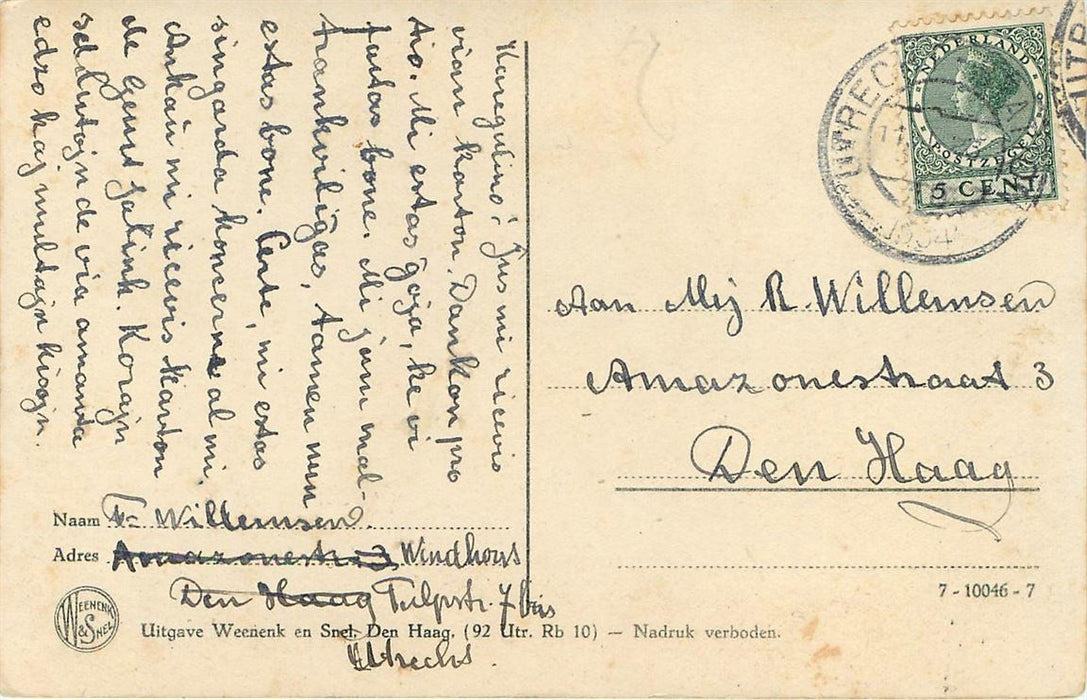 Karegulino! Ĵus mi ricevis
vian karton. Dankon pro
tio. Mi estas ĝoja, ke vi
fartas bone. Mi jam mal-
trankviliĝas, tamen nun
estas bone. Certe, mi estas
singarda koncerne al mi.
Ankaŭ mi ricevis karton
de Gent Jalink. Korajn
salutojn de via amanta
edzo kaj multajn kisojn.
Naam F. Willemsen.
Adres Amazonestr. 3 Windhorst
Den Haag Tulpstr. 7 bis
Utrecht.
WEENENK & SNEL
Uitgave Weenenk en Snel. Den Haag. (92 Utr. Rb 10) — Nadruk verboden.
NEDERLAND
POSTZEGEL
5 CENT
UTRECHT
1934
UTR
Aan Mej R. Willemsen
Amazonestraat 3
Den Haag
7-10046-7